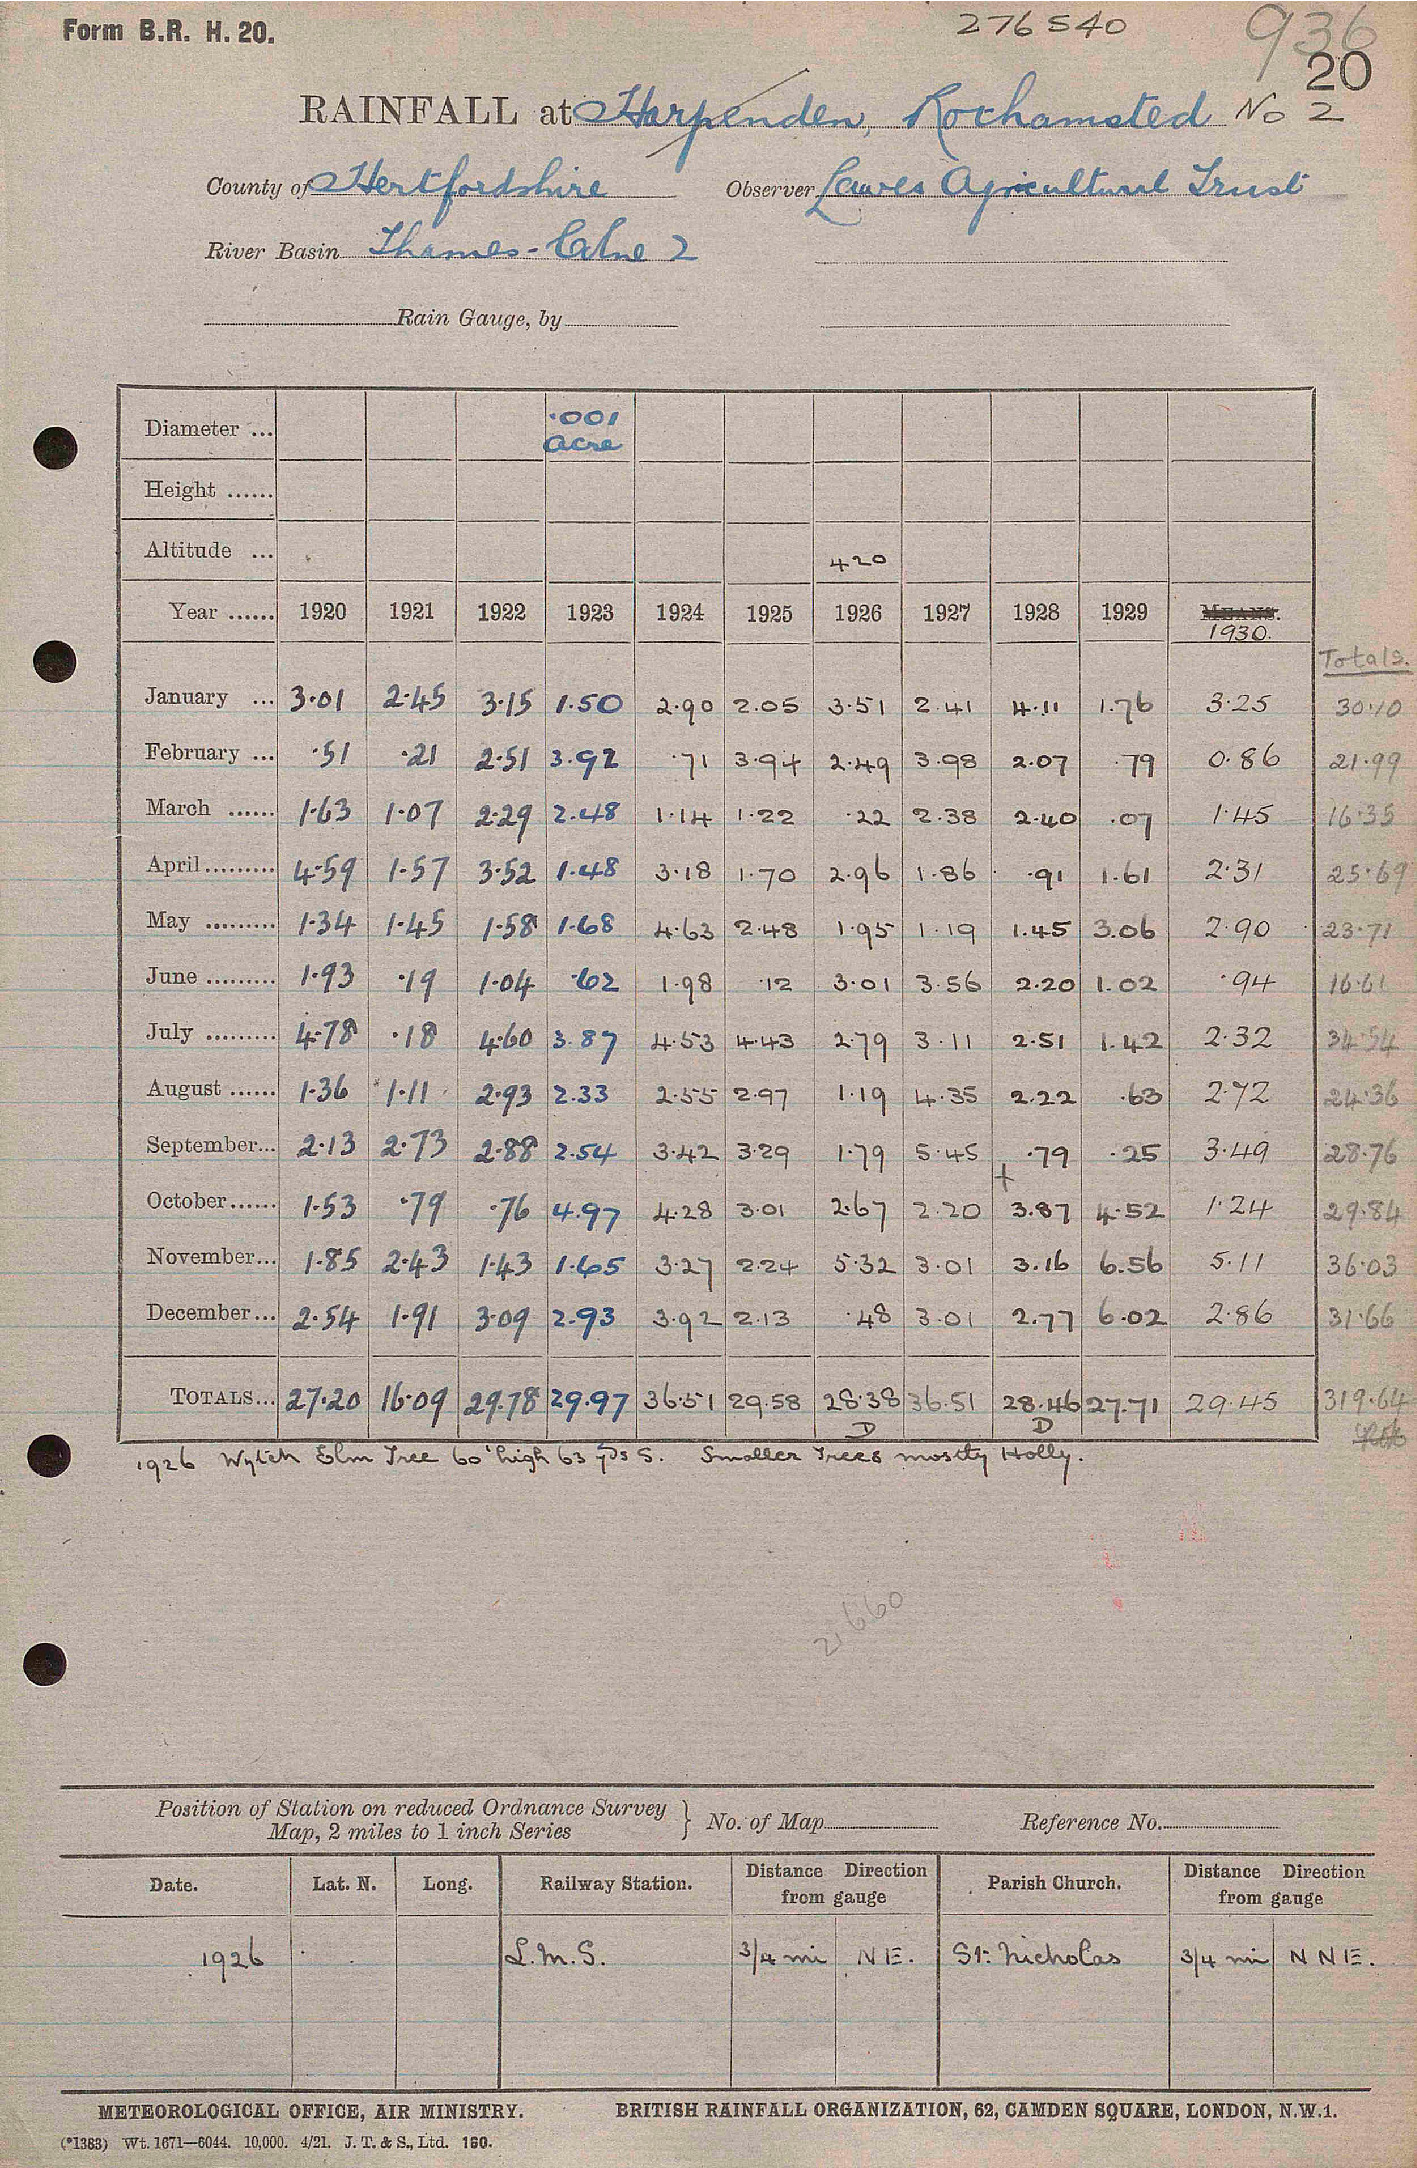 Form B.R. H. 20.
276540
936
20
RAINFALL at Harpenden, Rothamsted No 2
County of Hertfordshire Observer Lawes Agricultural Trust
River Basin Thames - Colne 2
Rain Gauge, by
Diameter ... ·001 acre
Height ......
Altitude ... 420
Year ...... 1920 1921 1922 1923 1924 1925 1926 1927 1928 1929 MEANS. 1930.
Totals.
January ... 3·01 2·45 3·15 1.50 2.90 2.05 3·51 2.41 4.11 1.76 3·25 30·10
February ... ·51 ·21 2·51 3.92 ·71 3·94 2·49 3·98 2·07 ·79 0·86 21·99
March ...... 1·63 1·07 2·29 2·48 1·14 1·22 ·22 2·38 2·40 ·07 1·45 16·35
April ......... 4·59 1·57 3·52 1·48 3·18 1·70 2·96 1·86 ·91 1·61 2·31 25·69
May ......... 1·34 1·45 1·58 1·68 4·63 2·48 1·95 1·19 1.45 3.06 2·90 23·71
June ......... 1·93 ·19 1·04 ·62 1·98 ·12 3·01 3·56 2·20 1.02 ·94 16·61
July ......... 4·78 ·18 4·60 3.87 4·53 4·43 2·79 3·11 2·51 1.42 2·32 34·54
August ...... 1·36 1·11 2·93 2·33 2·55 2·97 1·19 4·35 2·22 ·63 2·72 24·36
September... 2·13 2·73 2·88 2·54 3·42 3·29 1·79 5·45 ·79 ·25 3·49 28·76
+
October ...... 1·53 ·79 ·76 4.97 4·28 3·01 2·67 2·20 3·87 4·52 1·24 29·84
November... 1·85 2·43 1·43 1·65 3·27 2·24 5·32 3·01 3·16 6.56 5·11 36·03
December... 2·54 1·91 3·09 2·93 3·92 2·13 ·48 3·01 2·77 6·02 2·86 31·66
TOTALS... 27·20 16·09 29·78 29·97 36·51 29·58 28·38 36·51 28·46 27·71 29·45 319·64
D D
1926 Wytch Elm Tree 60' high 63 yds S. Smaller Trees mostly Holly.
2,660
Position of Station on reduced Ordnance Survey Map, 2 miles to 1 inch Series } No. of Map Reference No.
Date. Lat. N. Long. Railway Station. Distance Direction from gauge Parish Church. Distance Direction from gauge
1926 L.M.S. 3/4 mi NE. St. Nicholas 3/4 mi NNE.
METEOROLOGICAL OFFICE, AIR MINISTRY. BRITISH RAINFALL ORGANIZATION, 62, CAMDEN SQUARE, LONDON, N.W.1.
(*1383) Wt. 1671—6044. 10,000. 4/21. J. T. & S., Ltd. 160.